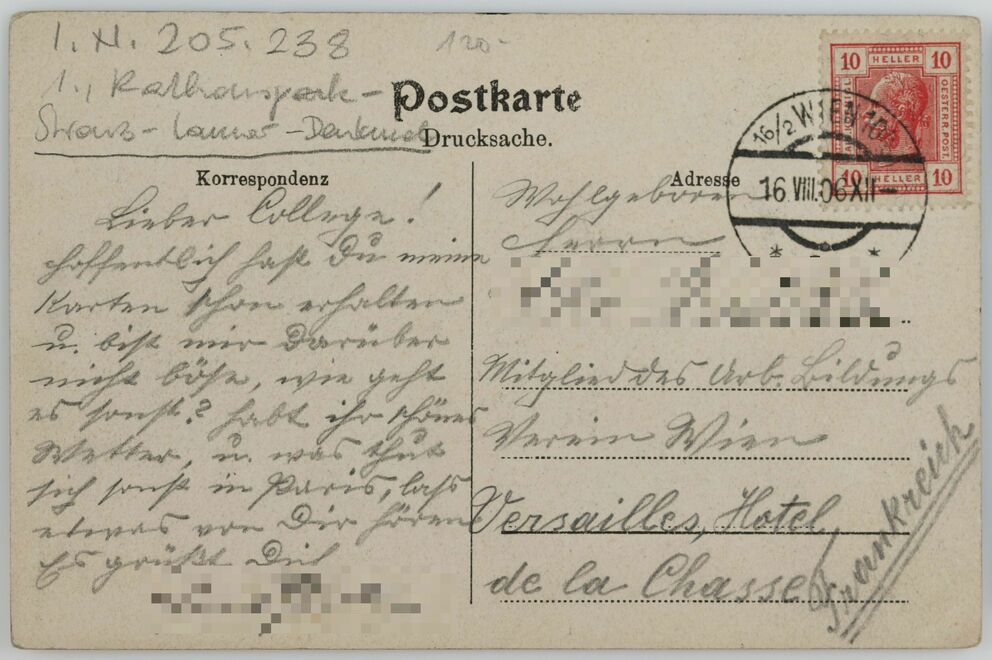 I. N. 205.238
120-
1., Rathauspark-
Strauß-Lanner-Denkmal
Postkarte
Drucksache.
Korrespondenz
Lieber College!
Hoffentlich hast Du meine
Karten schon erhalten
u. bist mir darüber
nicht böse, wie geht
es sonst? habt ihr schönes
Wetter, u. was thut
sich sonst in Paris, lass
etwas von Dir hören
Es grüßt Dich
10 HELLER 10
OESTERR. POST.
10 HELLER 10
16/2 WIEN
16.VIII.06 XII
Adresse
Wohlgeboren
Herrn
Mitglied des Arb. Bildungs
Verein Wien
Versailles, Hotel
de la Chasse
Frankreich